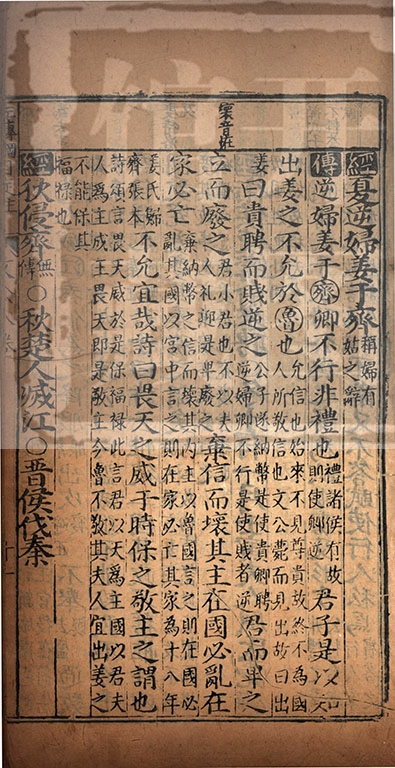 經夏逆婦姜于齊稱婦有姑之辭
傳逆婦姜于齊卿不行非禮也禮諸侯有故則使卿逆君子是以知
出姜之不允於魯也允信也始來不見尊貴故終不為國人所敬信也文公薨而見出故曰出
姜曰貴聘而賤逆之公子遂納幣是使貴卿聘逆婦卿不行是使賤者逆君而卑之
立而廢之君小君也不以夫人禮迎是卑廢之棄信而壞其主在國必亂在
家必亡棄納幣之信而壞其内主以魯國言之則在國必亂其國以宮中言之則在家必亡其家為十八年
姜氏歸齊張本不允宜哉詩曰畏天之威于時保之敬主之謂也
詩頌言畏天威於是保福祿此言君以天為主國以君夫人為主成主畏天即是敬主今魯不敬其夫人宜出姜之
不能保其福祿也
經狄侵齊無傳○秋楚人滅江○晉侯伐秦